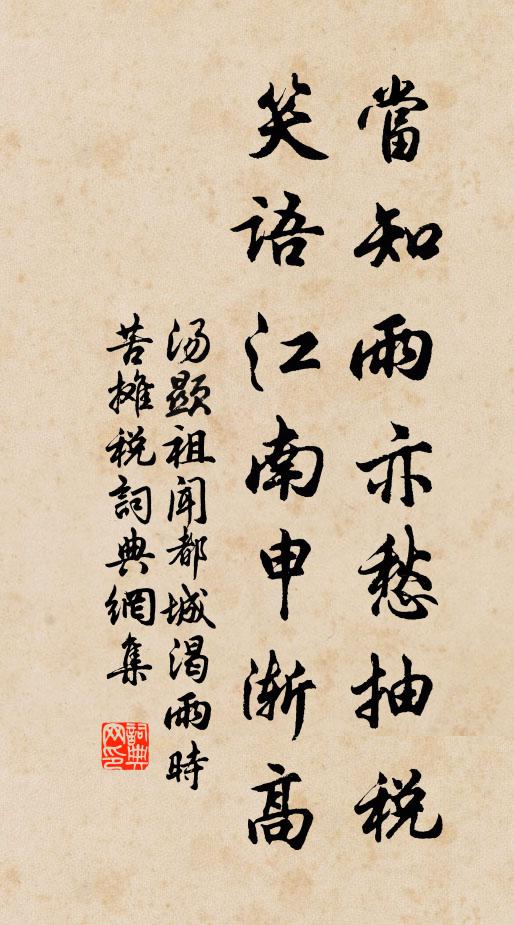 當知雨亦愁抽税
笑語江南申漸高
汤顯祖聞都城渴雨時
苦攤税詞典網集
詞典网印